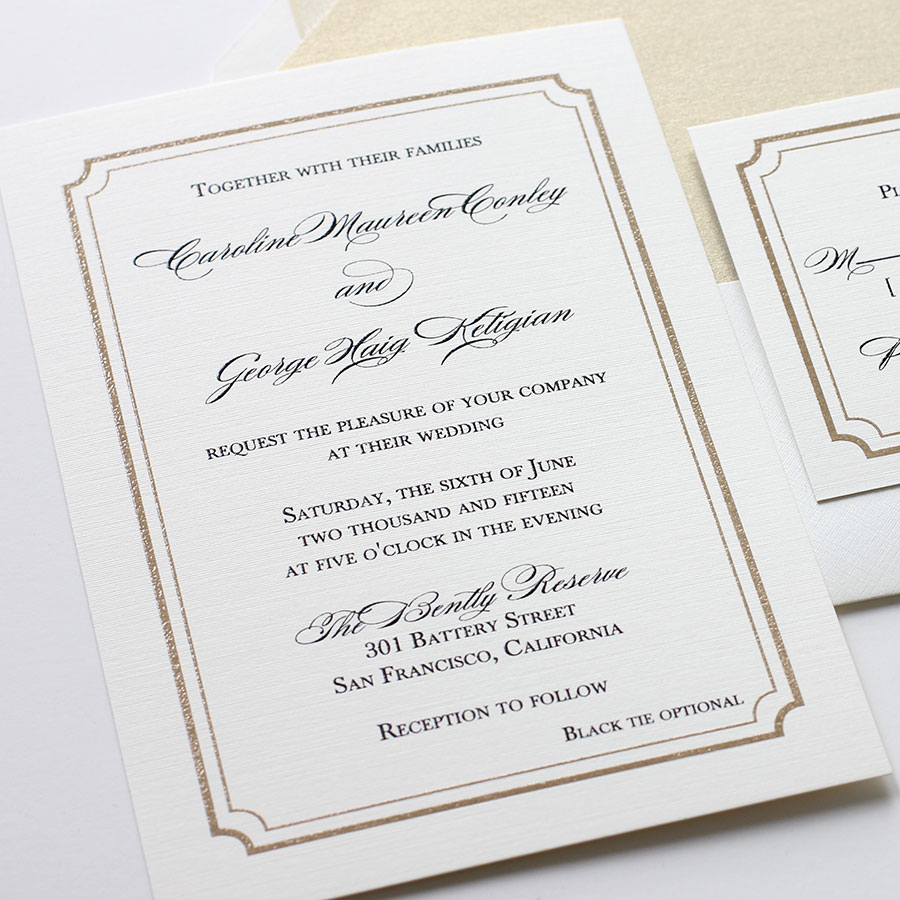 Together with their families
Caroline Maureen Conley
and
George Haig Ketigian
request the pleasure of your company
at their wedding
Saturday, the sixth of June
two thousand and fifteen
at five o'clock in the evening
The Bently Reserve
301 Battery Street
San Francisco, California
Reception to follow
Black tie optional
M
[